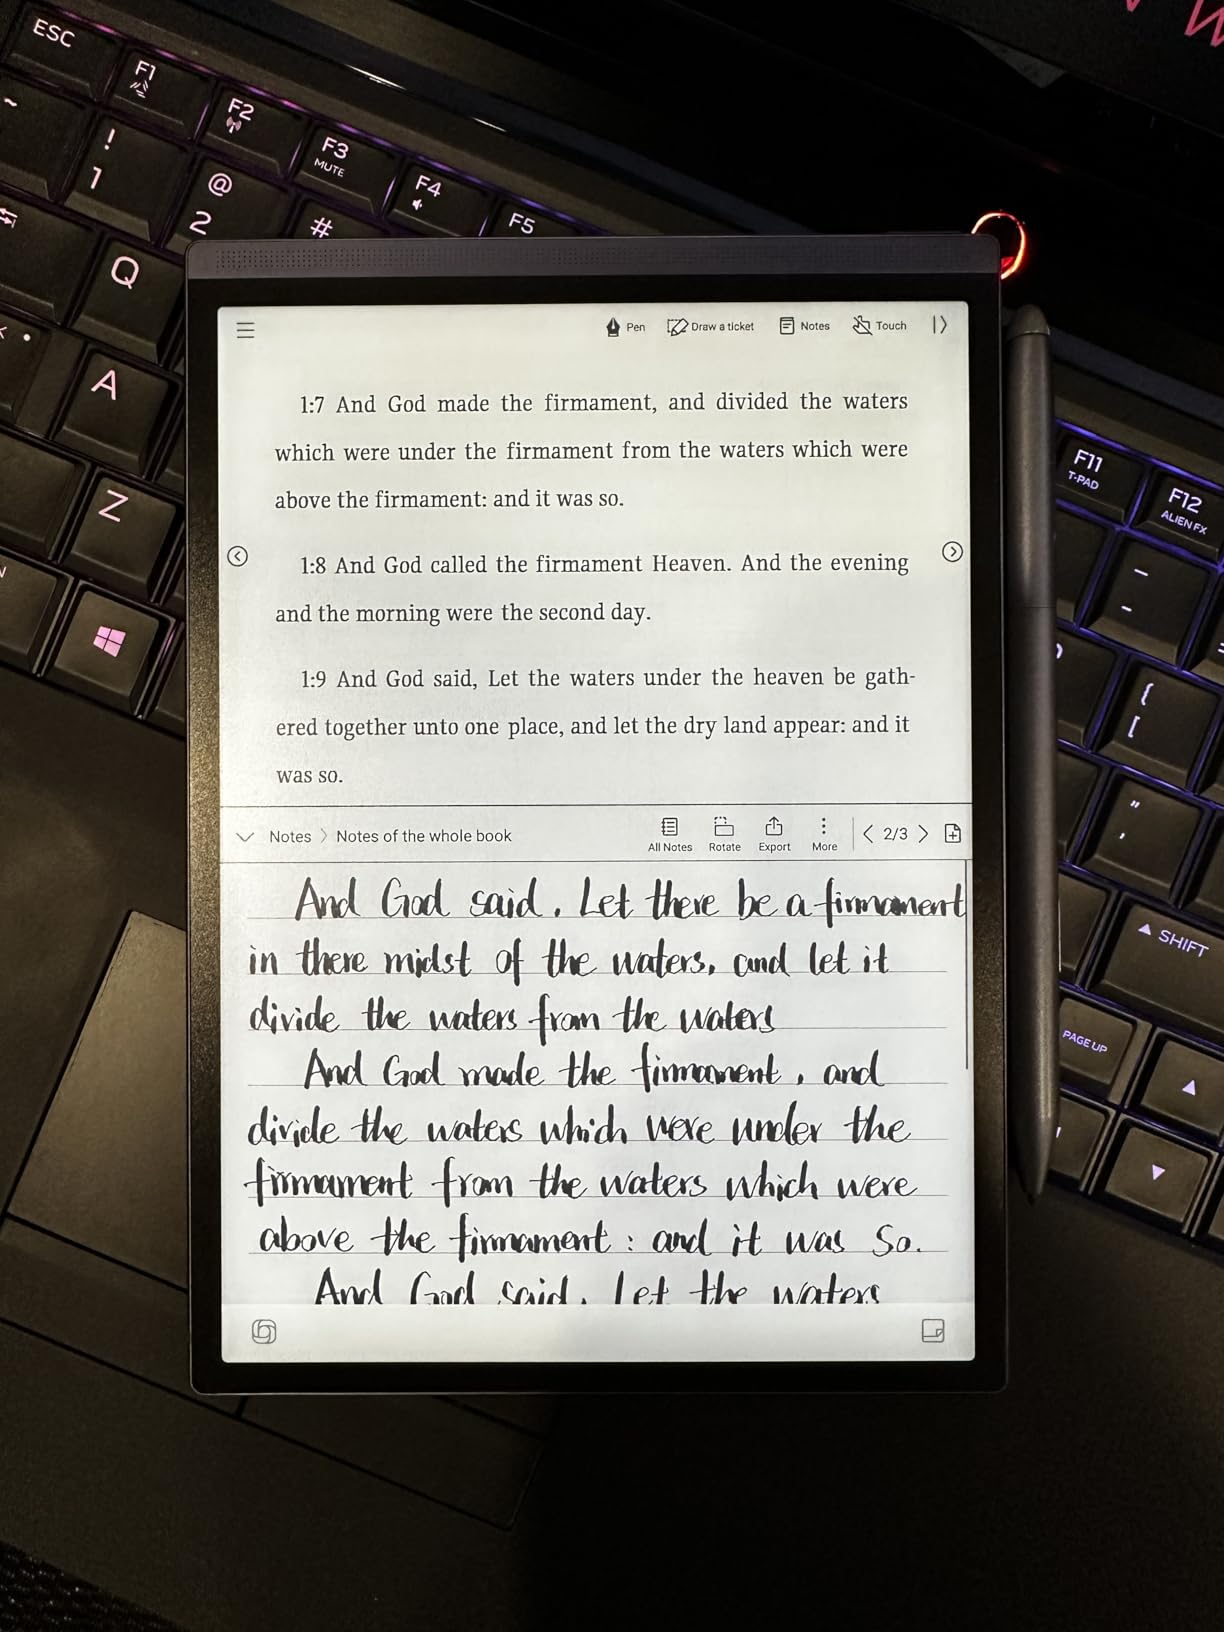 ESC
F1
F2
F3
MUTE
F4
F5
~
!
1
@
2
#
Q
A
Z
Pen
Draw a ticket
Notes
Touch
1:7 And God made the firmament, and divided the waters
which were under the firmament from the waters which were
above the firmament: and it was so.
1:8 And God called the firmament Heaven. And the evening
and the morning were the second day.
1:9 And God said, Let the waters under the heaven be gath-
ered together unto one place, and let the dry land appear: and it
was so.
Notes > Notes of the whole book
All Notes
Rotate
Export
More
< 2/3 >
And God said, Let there be a firmament
in there midst of the waters, and let it
divide the waters from the waters
And God made the firmament, and
divide the waters which were under the
firmament from the waters which were
above the firmament : and it was So.
And God said, Let the waters
F11
T-PAD
F12
ALIEN FX
{
[
"
,
SHIFT
PAGE UP